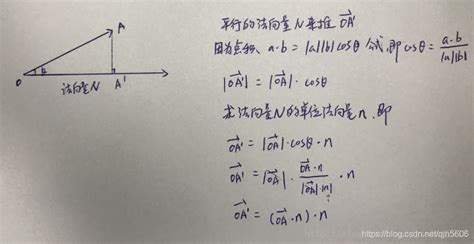 平行的法向量N来推 OA'
因为点积、a·b = |a||b|cosθ 公式,即 cosθ = a·b / |a||b|
|OA'| = |OA|·cosθ
求法向量N的单位法向量n,即
OA' = |OA|·cosθ·n
OA' = |OA|· OA·n / |OA|·|n| ·n
OA' = (OA·n)·n
A
O
法向量N
A'
https://blog.csdn.net/qjh5606